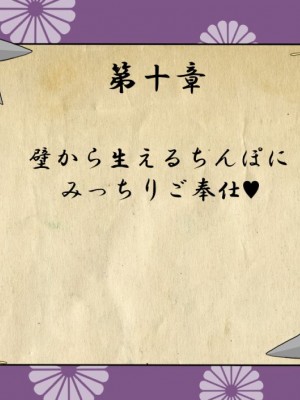 第十章
壁から生えるちんぽに
みっちりご奉仕♥